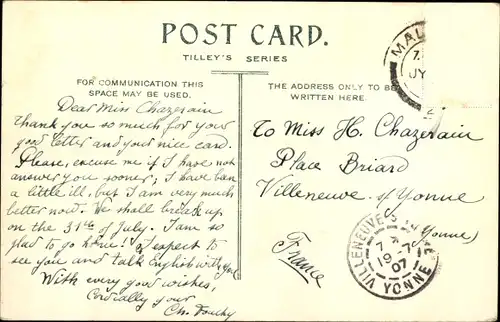 POST CARD.
TILLEY'S SERIES
FOR COMMUNICATION THIS
SPACE MAY BE USED.
THE ADDRESS ONLY TO BE
WRITTEN HERE.
Dear Miss Chazerain
Thank you so much for your
good letter and your nice card.
Please, excuse me if I have not
answer you sooner; I have ban
a little ill, but I am very much
better now. We shall break up
on the 31st of July. I am so
glad to go home! I expect to
see you and talk English with you
With every good wishes,
Cordially your
Ch.
To Miss H. Chazerain
Place Briard
Villeneuve s/ Yonne
(Yonne)
France
MAL
7
JY
2
VILLENEUVE
7
19 7
07
YONNE